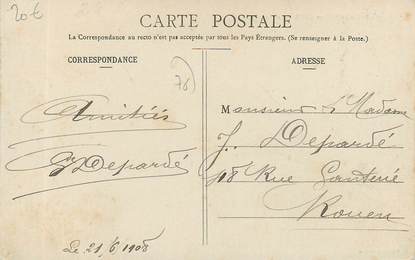 20€
CARTE POSTALE
La Correspondance au recto n'est pas acceptée par tous les Pays Étrangers. (Se renseigner à la Poste.)
CORRESPONDANCE
ADRESSE
78
Amitiés
Depardé
Le 21/6 1908
Monsieur & Madame
J. Depardé
Rue Ganterie
Rouen